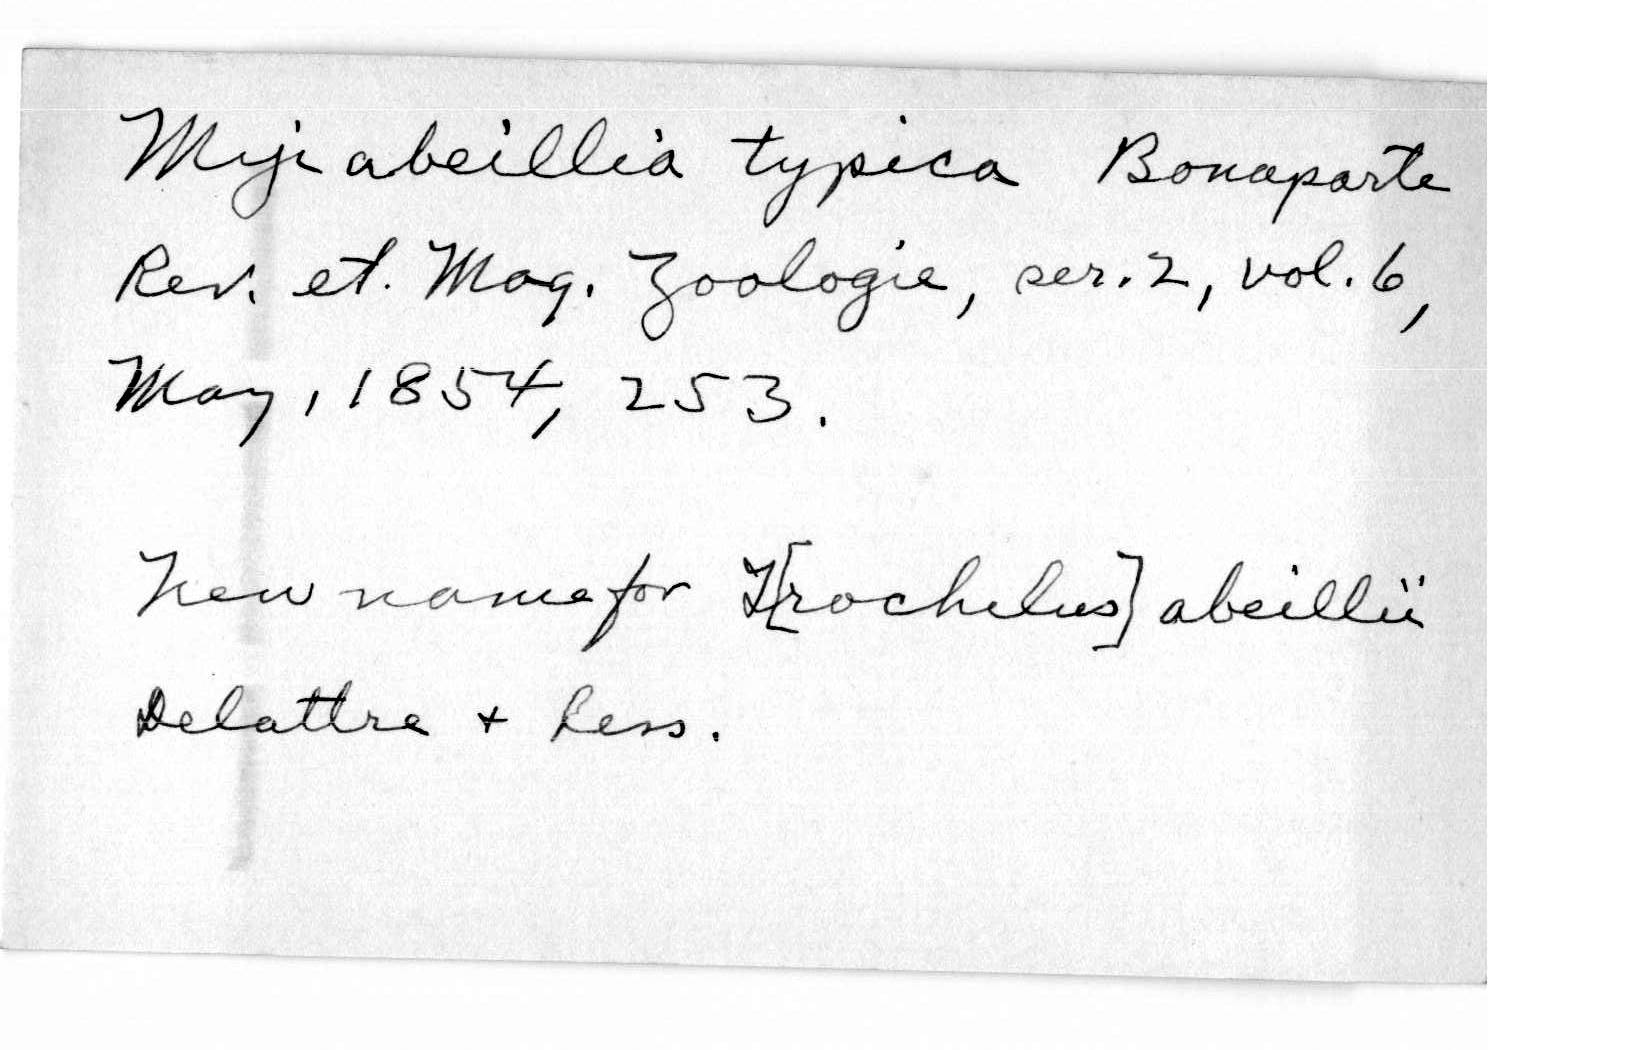 Myiabeillia typica Bonaparte
Rev. et. Mag. Zoologie, ser. 2, vol. 6,
May, 1854, 253.
New name for T[rochilus] abeillii
Delattre + Less.